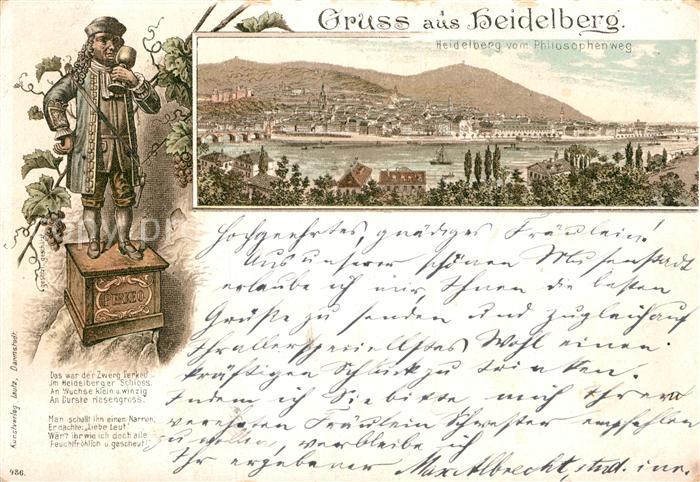 Gruss aus Heidelberg.
Heidelberg vom Philosophenweg
PERKEO
Das war der Zwerg Perkeo
Im Heidelberger Schloss,
An Wuchse klein u. winzig
An Durste riesengross.
Man schalt ihn einen Narren,
Er dachte: „Liebe Leut'
Wär't ihr wie ich doch alle
Feuchtfröhlich u. gescheut!"
Kunstverlag Lautz, Darmstadt.
486.
Hochgeehrtes, gnädiges Fräulein!
Aus unserer schönen Musenstadt
erlaube ich mir, Ihnen die besten
Grüße zu senden und zugleich auf
Ihr allerspeciellstes Wohl einen
kräftigen Schluck zu trinken.
Indem ich Sie bitte mich Ihrem
verehrten Fräulein Schwester empfehlen
zu wollen, verbleibe ich
Ihr ergebener Max Albrecht, stud. iur.